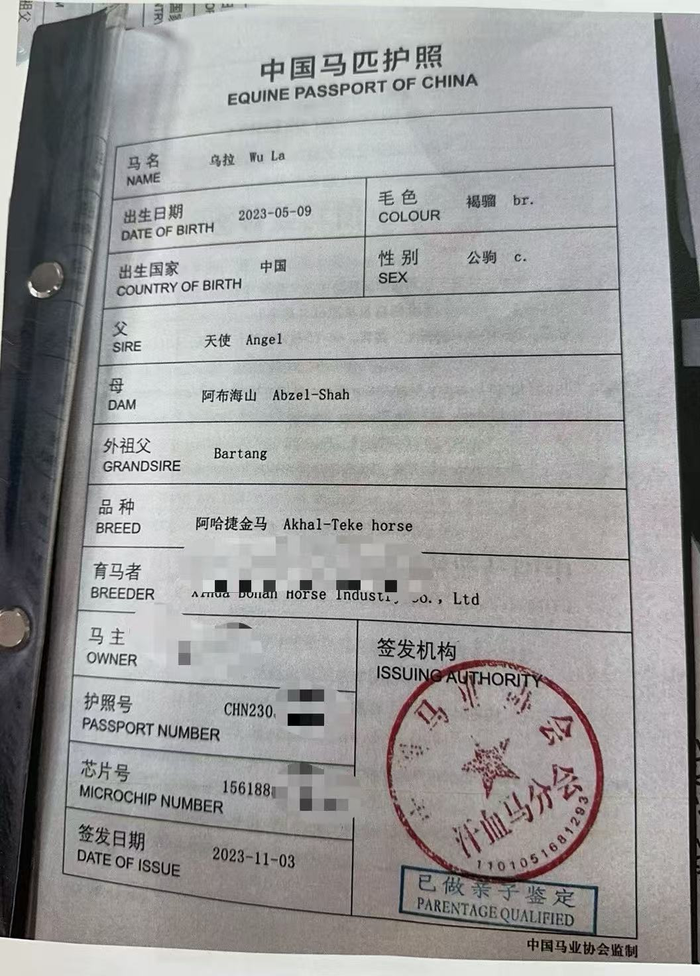 中国马匹护照
EQUINE PASSPORT OF CHINA
马名 乌拉 Wu La
NAME
出生日期 2023-05-09
DATE OF BIRTH
毛色 褐骝 br.
COLOUR
出生国家 中国
COUNTRY OF BIRTH
性别 公驹 c.
SEX
父
SIRE 天使 Angel
母
DAM 阿布海山 Abzel-Shah
外祖父
GRANDSIRE Bartang
品种
BREED 阿哈捷金马 Akhal-Teke horse
育马者
BREEDER Horse Co., Ltd
马主
OWNER
签发机构
ISSUING AUTHORITY
护照号 CHN230
PASSPORT NUMBER
芯片号 156188
MICROCHIP NUMBER
签发日期 2023-11-03
DATE OF ISSUE
马业协会
汗血马分会
1101051681293
已做亲子鉴定
PARENTAGE QUALIFIED
中国马业协会监制